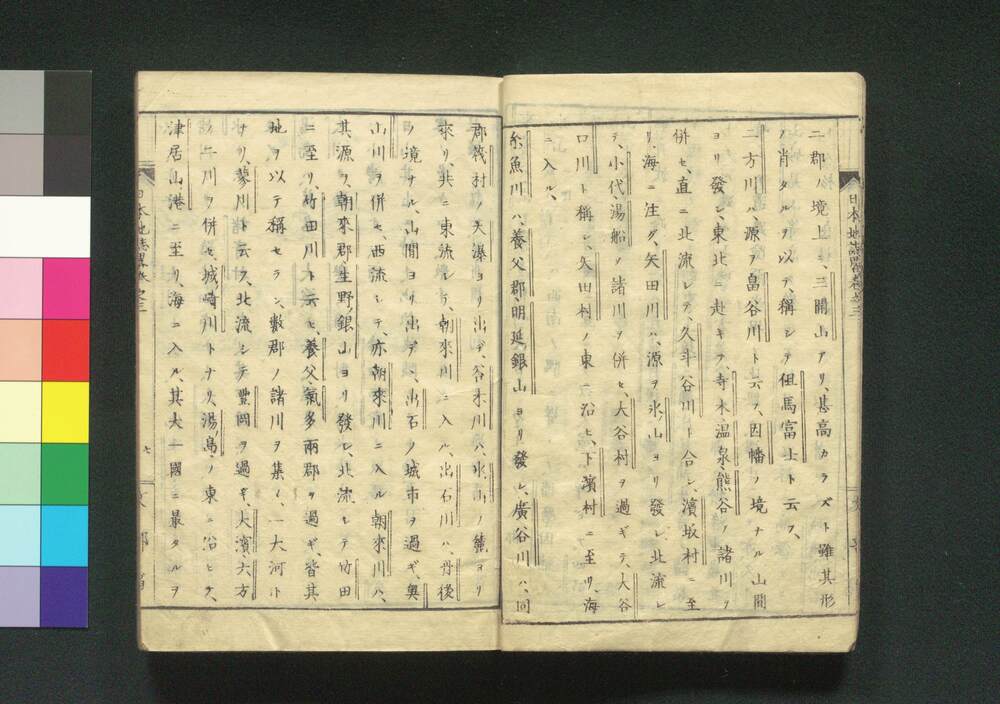 二郡ノ境上ニ、三開山アリ、甚高カラズト雖其形
ノ肖タルヲ以テ、稱シテ但馬富士ト云フ、
二方川ハ、源ヲ畠谷川ト云フ、因幡ノ境ナル山間
ヨリ發シ、東北ニ赴キテ、寺木、温泉、熊谷ノ諸川ヲ
併セ、直ニ北流シテ、久斗谷川ト合シ、濱坂村ニ至
リ、海ニ注グ、矢田川ハ、源ヲ氷ノ山ヨリ發シ、北流シ
テ、小代、湯船ノ諸川ヲ併セ、大谷村ヲ過ギテ、大谷
口川ト稱シ、矢田村ノ東ニ沿ヒ、下濱村ニ至リ、海
ニ入ル、
糸魚川ハ、養父郡、明延銀山ヨリ發シ、廣谷川ハ、同
郡筏村ノ天瀑ヨリ出デ、谷木川ハ、氷ノ山ノ麓ヨリ
來リ、共ニ東流シテ、朝來川ニ入ル、出石川ハ、丹後
ノ境ナル、山間ヨリ出デ、出石ノ城市ヲ過ギ、奥
山川ヲ併セ、西流シテ、亦朝來川ニ入ル、朝來川ハ、
其源ヲ、朝來郡、生野銀山ヨリ發シ、北流シテ竹田
ニ至リ、竹田川ト云ヒ、養父、氣多兩郡ヲ過ギ、皆其
地ヲ以テ稱セラレ、數郡ノ諸川ヲ集メ、一大河ト
ナリ、蓼川ト云フ、北流シテ豊岡ヲ過ギ、大濱、六方
ノ二川ヲ併セ、城崎川トナリ、湯島ノ東ニ沿ヒテ、
津居山港ニ至リ、海ニ入ル、其大一國ニ最タルヲ
日本地誌略 卷之三
七
文部省